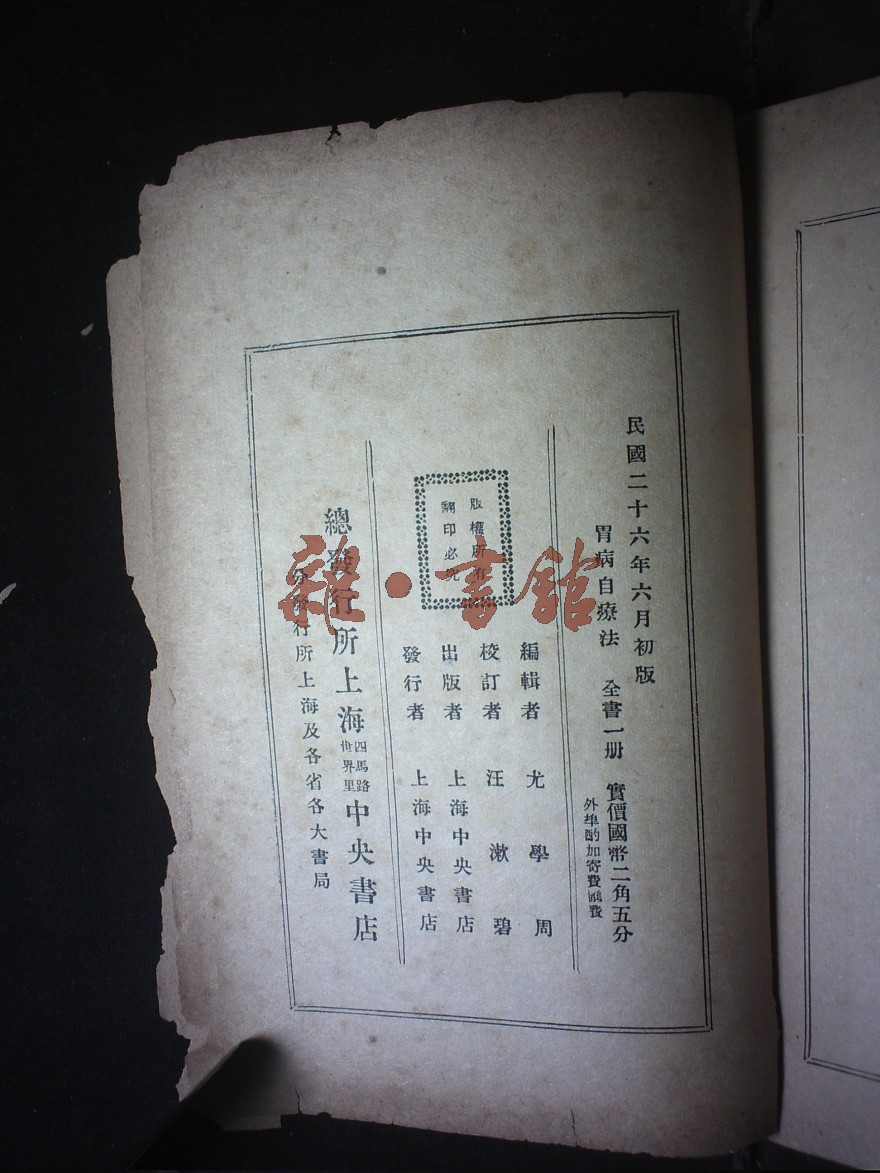 民國二十六年六月初版
胃病自療法 全書一册 實價國幣二角五分
外埠酌加寄費匯費
編輯者 尤學周
校訂者 汪漱碧
出版者 上海中央書店
發行者 上海中央書店
版權所有
翻印必究
總發行所上海四馬路世界里中央書店
分發行所上海及各省各大書局
雜·書館